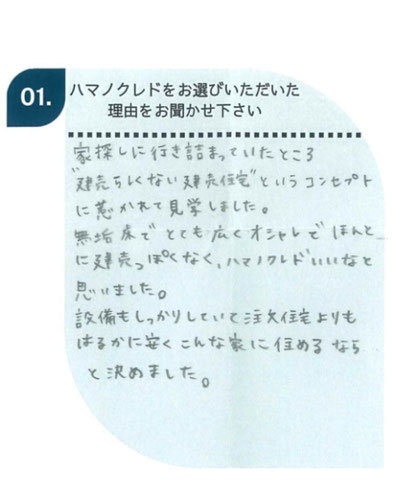 01.
ハマノクレドをお選びいただいた
理由をお聞かせ下さい
家探しに行き詰まっていたところ
"建売らしくない建売住宅"というコンセプト
に惹かれて見学しました。
無垢床でとても広くオシャレでほんと
に建売っぽくなく、ハマノクレドいいなと
思いました。
設備もしっかりしていて注文住宅よりも
はるかに安くこんな家に住めるなら
と決めました。